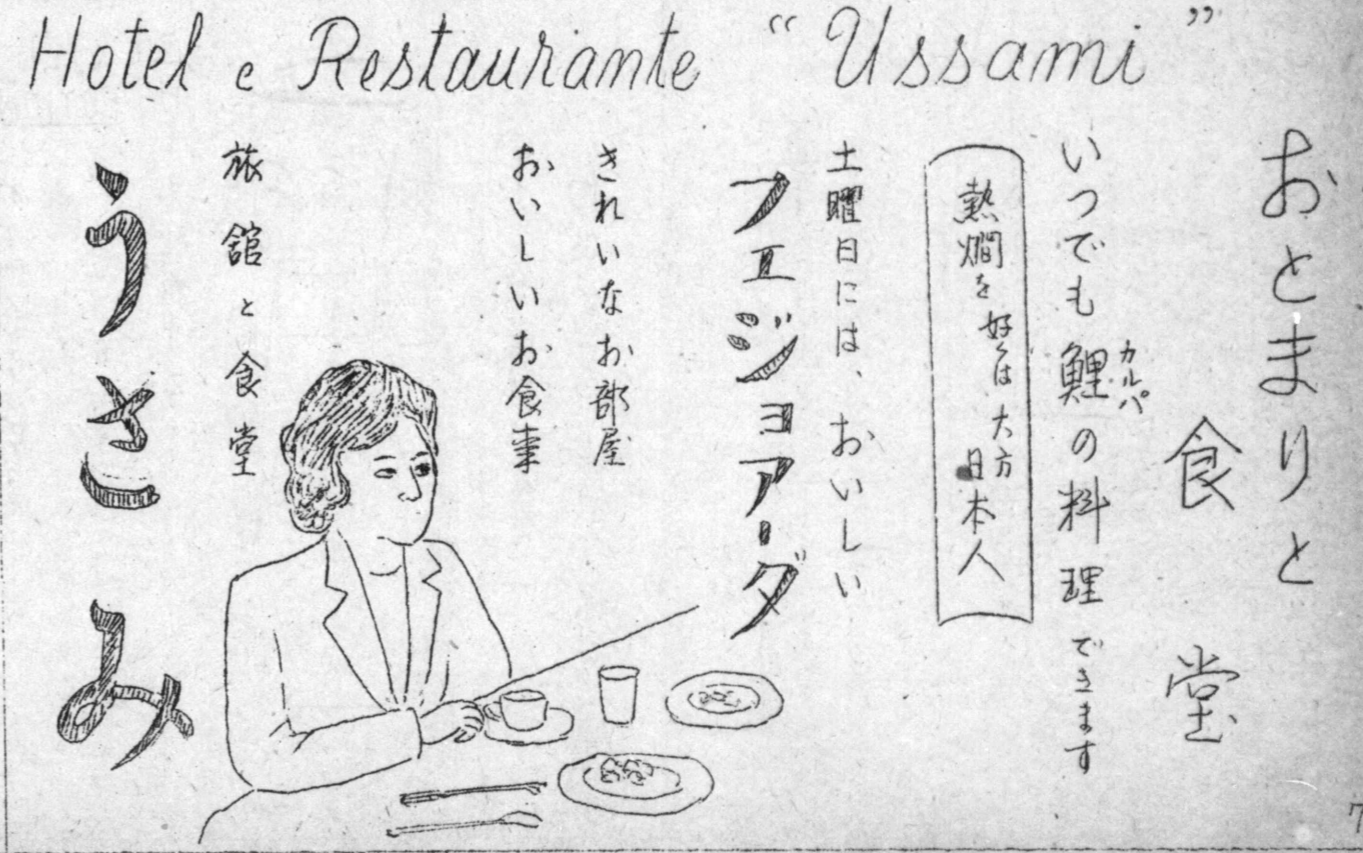 Hotel e Restaurante “Ussami”
おとまりと
食堂
いつでも鯉の料理できます
カルパ
熱燗を好くは大方
日本人
土曜日には、おいしい
フェジョアーダ
きれいなお部屋
おいしいお食事
旅舘と食堂
うさみ
7